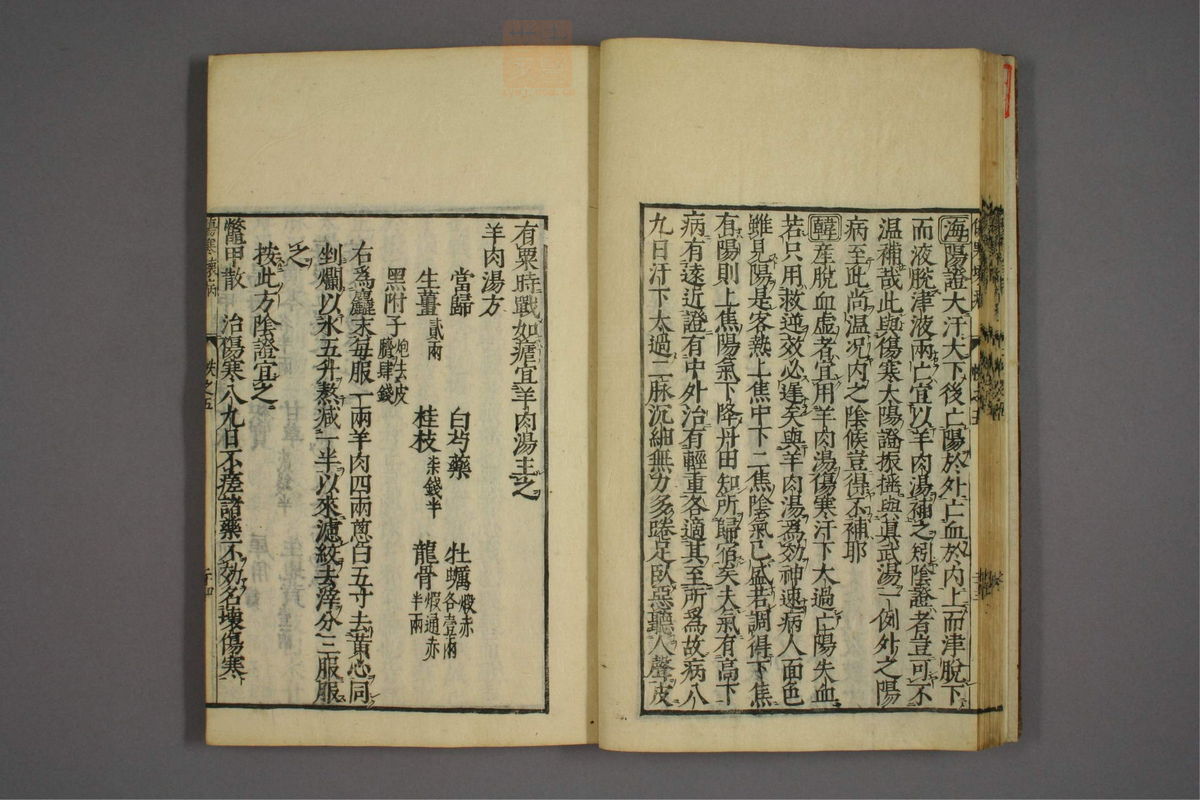 海陽證大汗大下後亡陽於外亡血於内上而津脫下
而液脫津液兩亡宜以羊肉湯補之矧陰證者豈可不
温補哉此與傷寒太陽證振搖與眞武湯一例外之陽
病至此尚温况内之陰候豈得不補耶
韓産脫血虚者宜用羊肉湯傷寒汗下太過亡陽失血
若只用救逆效必遲矣與羊肉湯爲効神速病人面色
雖見陽是客熱上焦中下二焦陰氣已盛若調得下焦
有陽則上焦陽氣下降丹田知所歸宿矣夫氣有高下
病有遠近證有中外治有輕重各適其至所爲故病八
九日汗下太過二脉沉細無力多踡足臥惡聽人聲皮
有粟時戰如瘧宜羊肉湯主之
羊肉湯方
當歸 白芍藥 牡蠣煅赤各壹兩
生薑貳兩 桂枝柒錢半 龍骨煅通赤半兩
黑附子炮去皮臍肆錢
右爲麤末每服一兩羊肉四兩葱白五寸去黄心同
剉爛以水五升熬减一半以來濾絞去滓分三服服
之
按此方陰證宜之
鱉甲散 治傷寒八九日不瘥諸藥不効名壞傷寒
傷寒壞病 帙之五 二十四